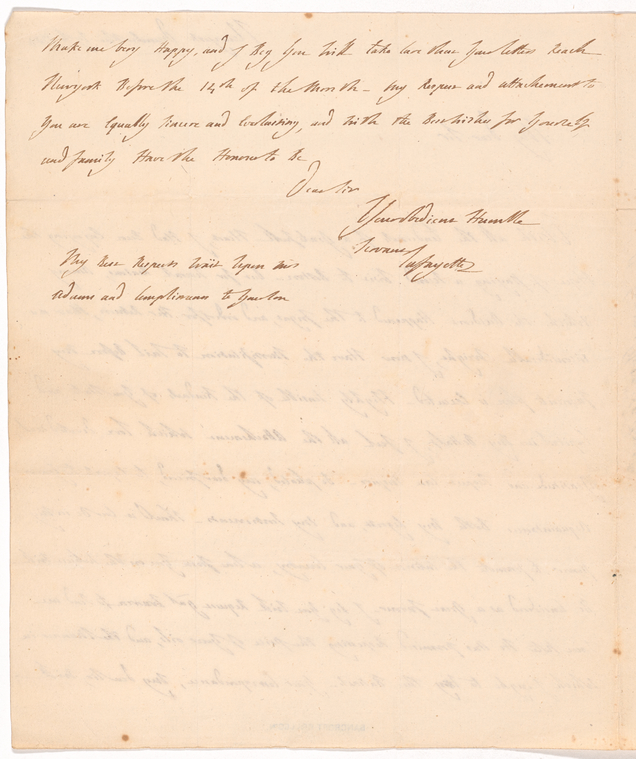 Make me very Happy, and I Beg You will take care that Your letters Reach
Newyork Before the 14th of the Month - My Respect and attachement to
You are Equally sincere and Everlasting, and with the Best wishes for Yourself
and family Have the Honor to Be
Dear Sir
Your obedient Humble
Servant
Lafayette
My Best Respects Wait Upon Mrs
Adams and Compliments to Your son